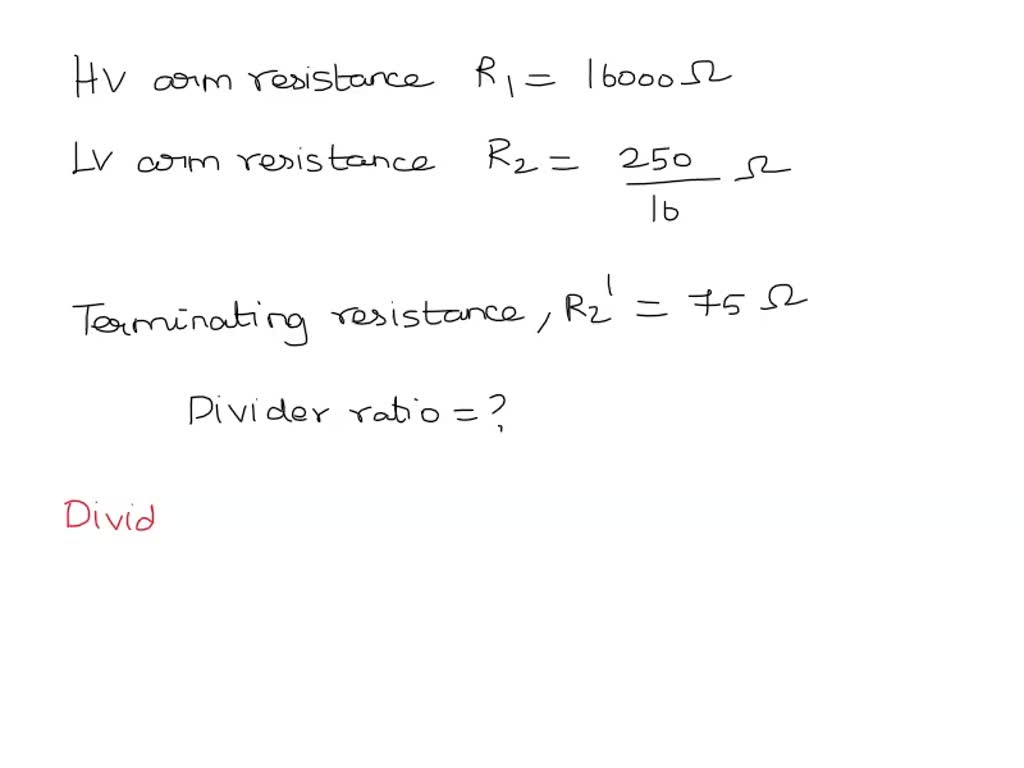 HV arm resistance R₁ = 16000 Ω
LV arm resistance R₂ = 250/16 Ω
Terminating resistance, R₂' = 75 Ω
Divider ratio = ?
Divid